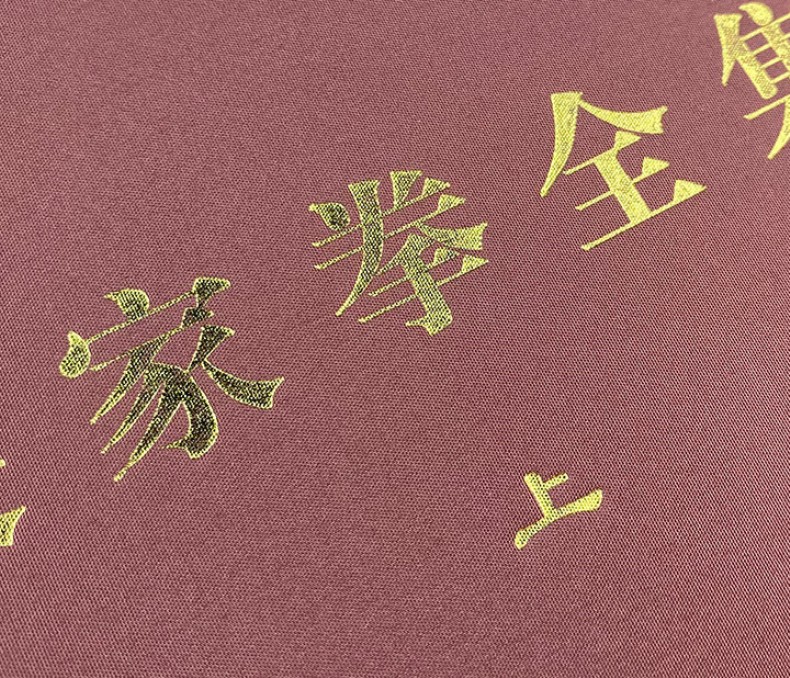 家拳全集
上